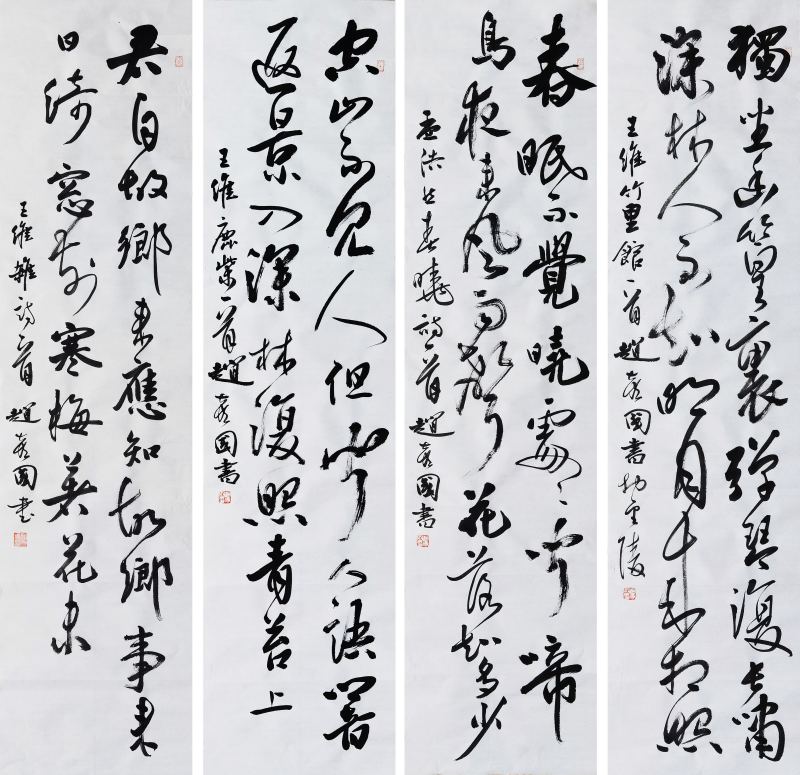 獨坐幽篁裏彈琴復長嘯
深林人不知明月來相照
王維竹里館一首趙國書於金陵
春眠不覺曉處〻聞啼
鳥夜來風雨聲花落知多少
孟浩然春曉詩一首趙國書
空山不見人但聞人語響
返景入深林復照青苔上
王維鹿柴一首趙國書
君自故鄉來應知故鄉事來
日綺窓前寒梅著花未
王維雜詩一首趙國書